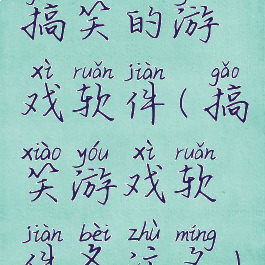 搞笑的游
xì ruǎn jiàn gǎo
戏软件(搞
xiào yóu xì ruǎn
笑游戏软
jiàn bèi zhù míng
件备注名)